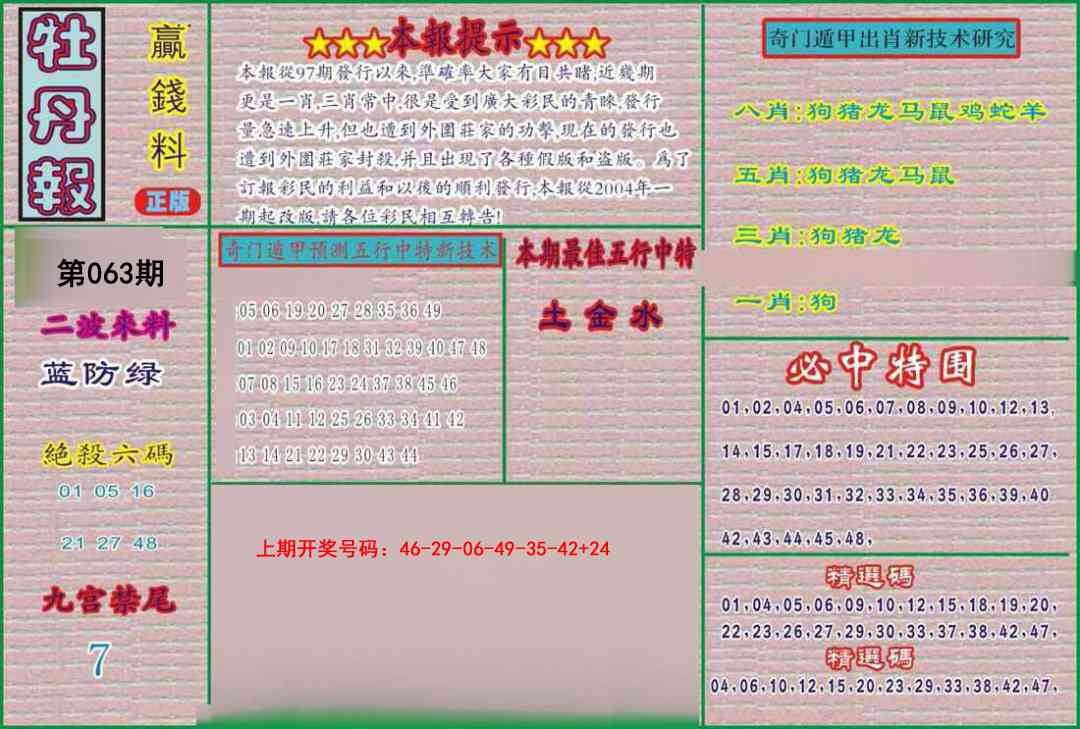 牡丹報
贏錢料
正版
★★★本報提示★★★
本報從97期發行以來,準確率大家有目共睹,近幾期
更是一肖,三肖常中,很是受到廣大彩民的青睞,發行
量急速上升,但也遭到外圍莊家的功擊,現在的發行也
遭到外圍莊家封殺,并且出現了各種假版和盗版。爲了
訂報彩民的利益和以後的順利發行,本報從2004年一
期起改版,請各位彩民相互轉告!
奇门遁甲出肖新技术研究
八肖:狗猪龙马鼠鸡蛇羊
五肖:狗猪龙马鼠
三肖:狗猪龙
一肖:狗
第063期
二波來料
蓝防绿
絶殺六碼
01 05 16
21 27 48
九宫禁尾
7
奇门遁甲预测五行中特新技术
05 06 19 20 27 28 35 36 49
01 02 09 10 17 18 31 32 39 40 47 48
07 08 15 16 23 24 37 38 45 46
03 04 11 12 25 26 33 34 41 42
13 14 21 22 29 30 43 44
本期最佳五行中特
土金水
上期开奖号码：46-29-06-49-35-42+24
必中特围
01,02,04,05,06,07,08,09,10,12,13,
14,15,17,18,19,21,22,23,25,26,27,
28,29,30,31,32,33,34,35,36,39,40
42,43,44,45,48,
精選碼
01,04,05,06,09,10,12,15,18,19,20,
22,23,26,27,29,30,33,37,38,42,47,
精選碼
04,06,10,12,15,20,23,29,33,38,42,47,